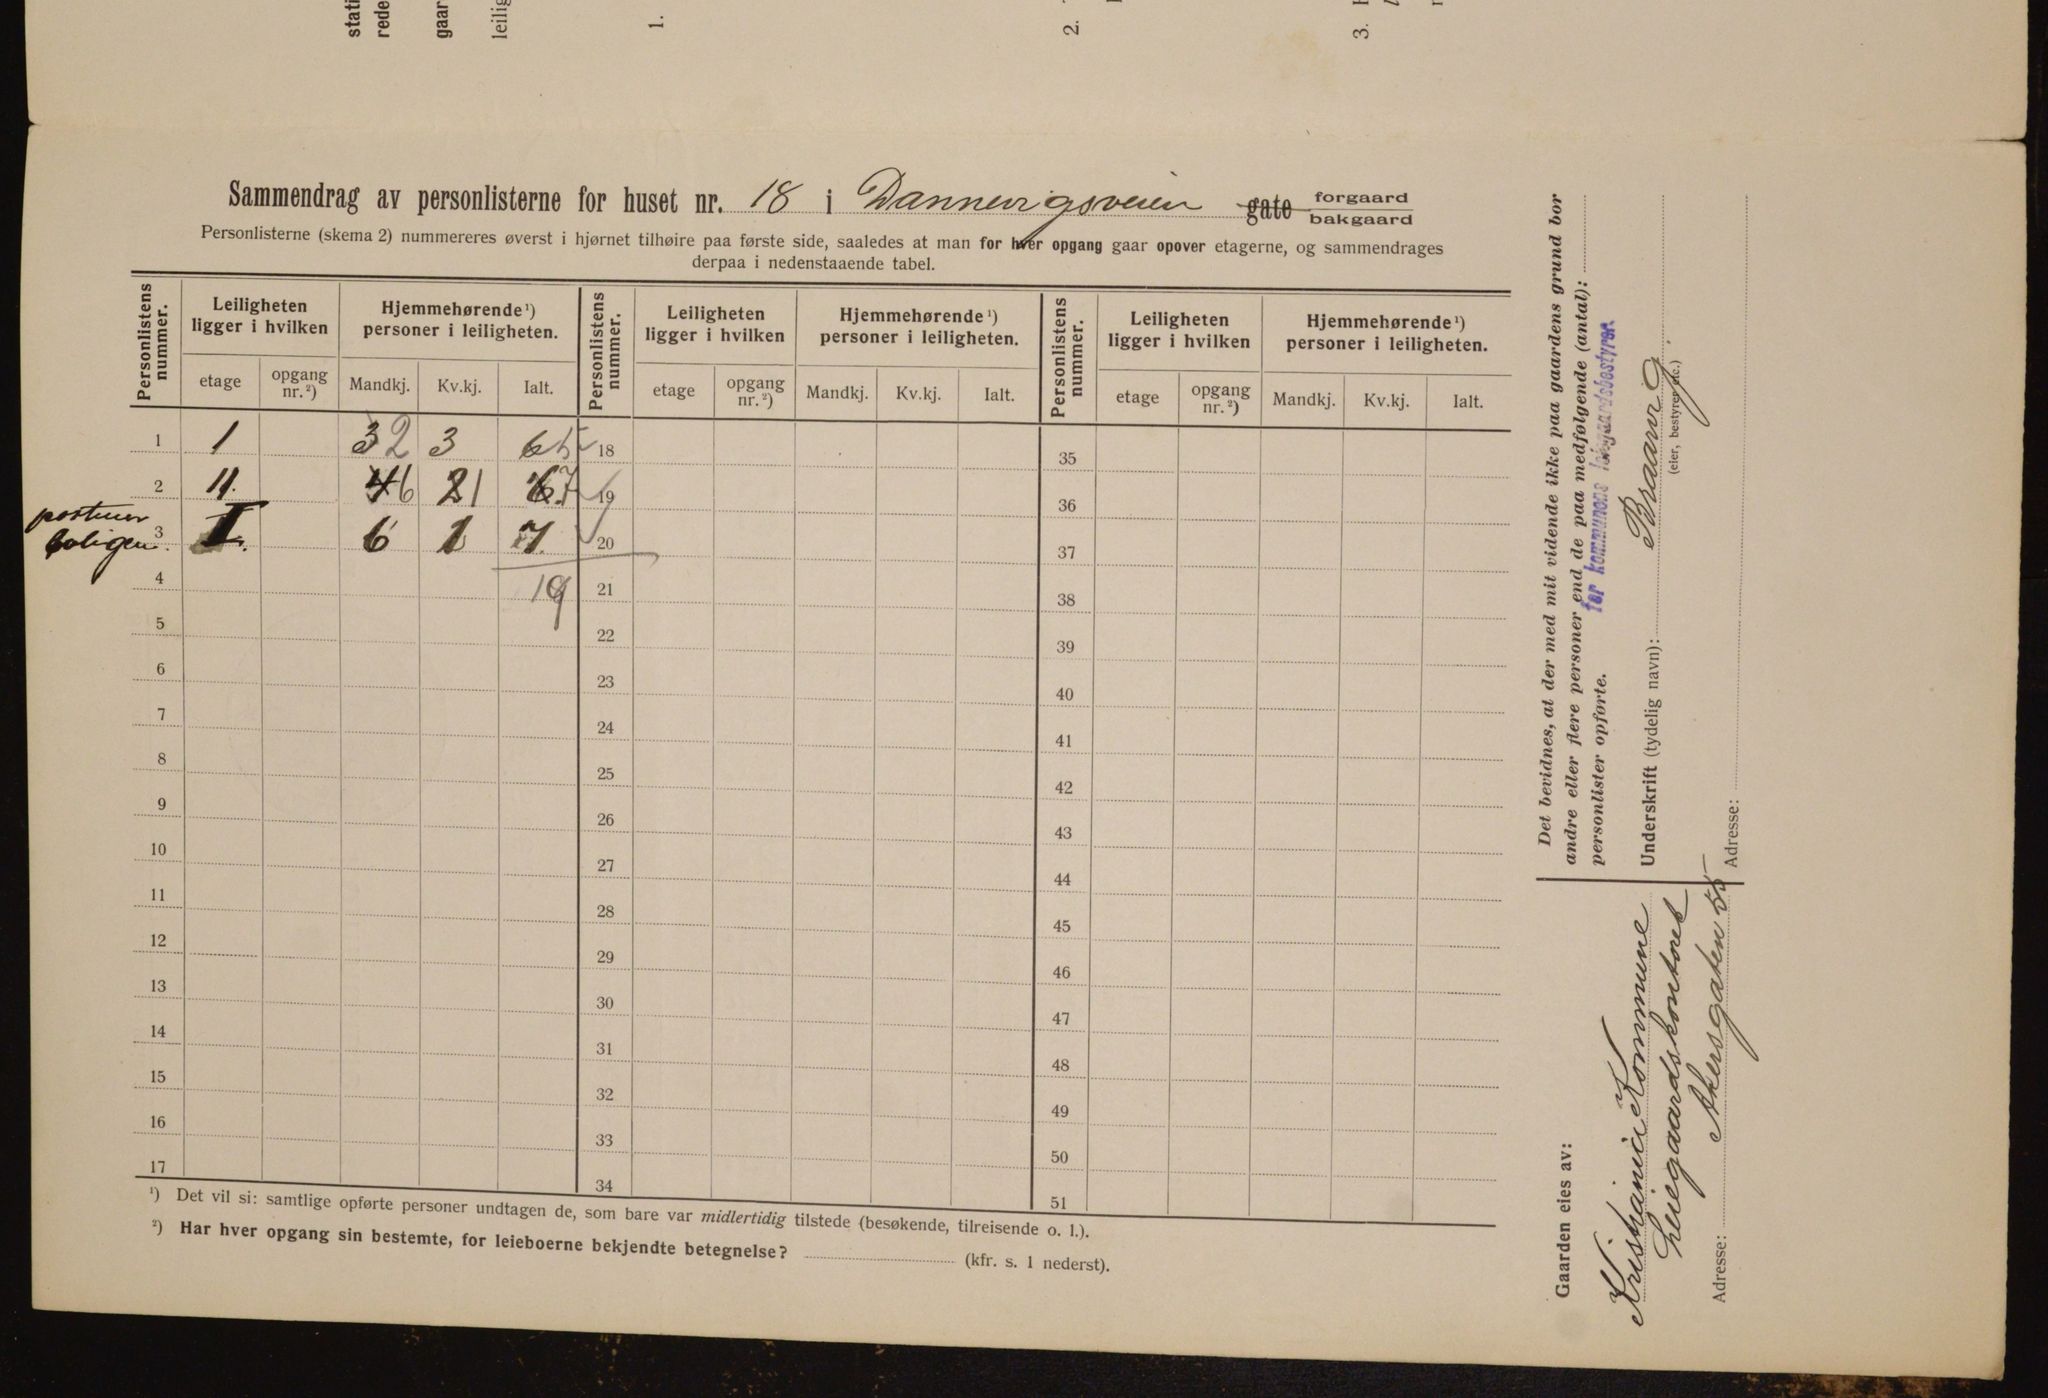 stati
rede
gaar
leilig
1.
2.
3.
Sammendrag av personlisterne for huset nr. 18 i Dannevigsveien gate forgaard bakgaard
Personlisterne (skema 2) nummereres øverst i hjørnet tilhøire paa første side, saaledes at man for hver opgang gaar opover etagerne, og sammendrages
derpaa i nedenstaaende tabel.
Personlistens nummer. Leiligheten ligger i hvilken Hjemmehørende¹) personer i leiligheten. Personlistens nummer. Leiligheten ligger i hvilken Hjemmehørende¹) personer i leiligheten. Personlistens nummer. Leiligheten ligger i hvilken Hjemmehørende¹) personer i leiligheten.
etage opgang nr.²) Mandkj. Kv.kj. Ialt. etage opgang nr.²) Mandkj. Kv.kj. Ialt. etage opgang nr.²) Mandkj. Kv.kj. Ialt.
1 1 3 2 3 6 5 18 35
2 11. 4 6 2 1 6 7 19 36
3 I. 6 1 7. 20 37
boligen.
4 19 21 38
5 22 39
6 23 40
7 24 41
8 25 42
9 26 43
10 27 44
11 28 45
12 29 46
13 30 47
14 31 48
15 32 49
16 33 50
17 34 51
¹) Det vil si: samtlige opførte personer undtagen de, som bare var midlertidig tilstede (besøkende, tilreisende o. l.).
²) Har hver opgang sin bestemte, for leieboerne bekjendte betegnelse? (kfr. s. 1 nederst).
Det bevidnes, at der med mit vidende ikke paa gaardens grund bor
andre eller flere personer end de paa medfølgende (antal):
personlister opførte.
for kommunens leiegaardsbestyrer.
Underskrift (tydelig navn): Braarvig.
(eier, bestyrer etc.)
Adresse:
Gaarden eies av:
Kristiania Kommune
Leiegaardskontoret
Adresse: Akersgaten 55